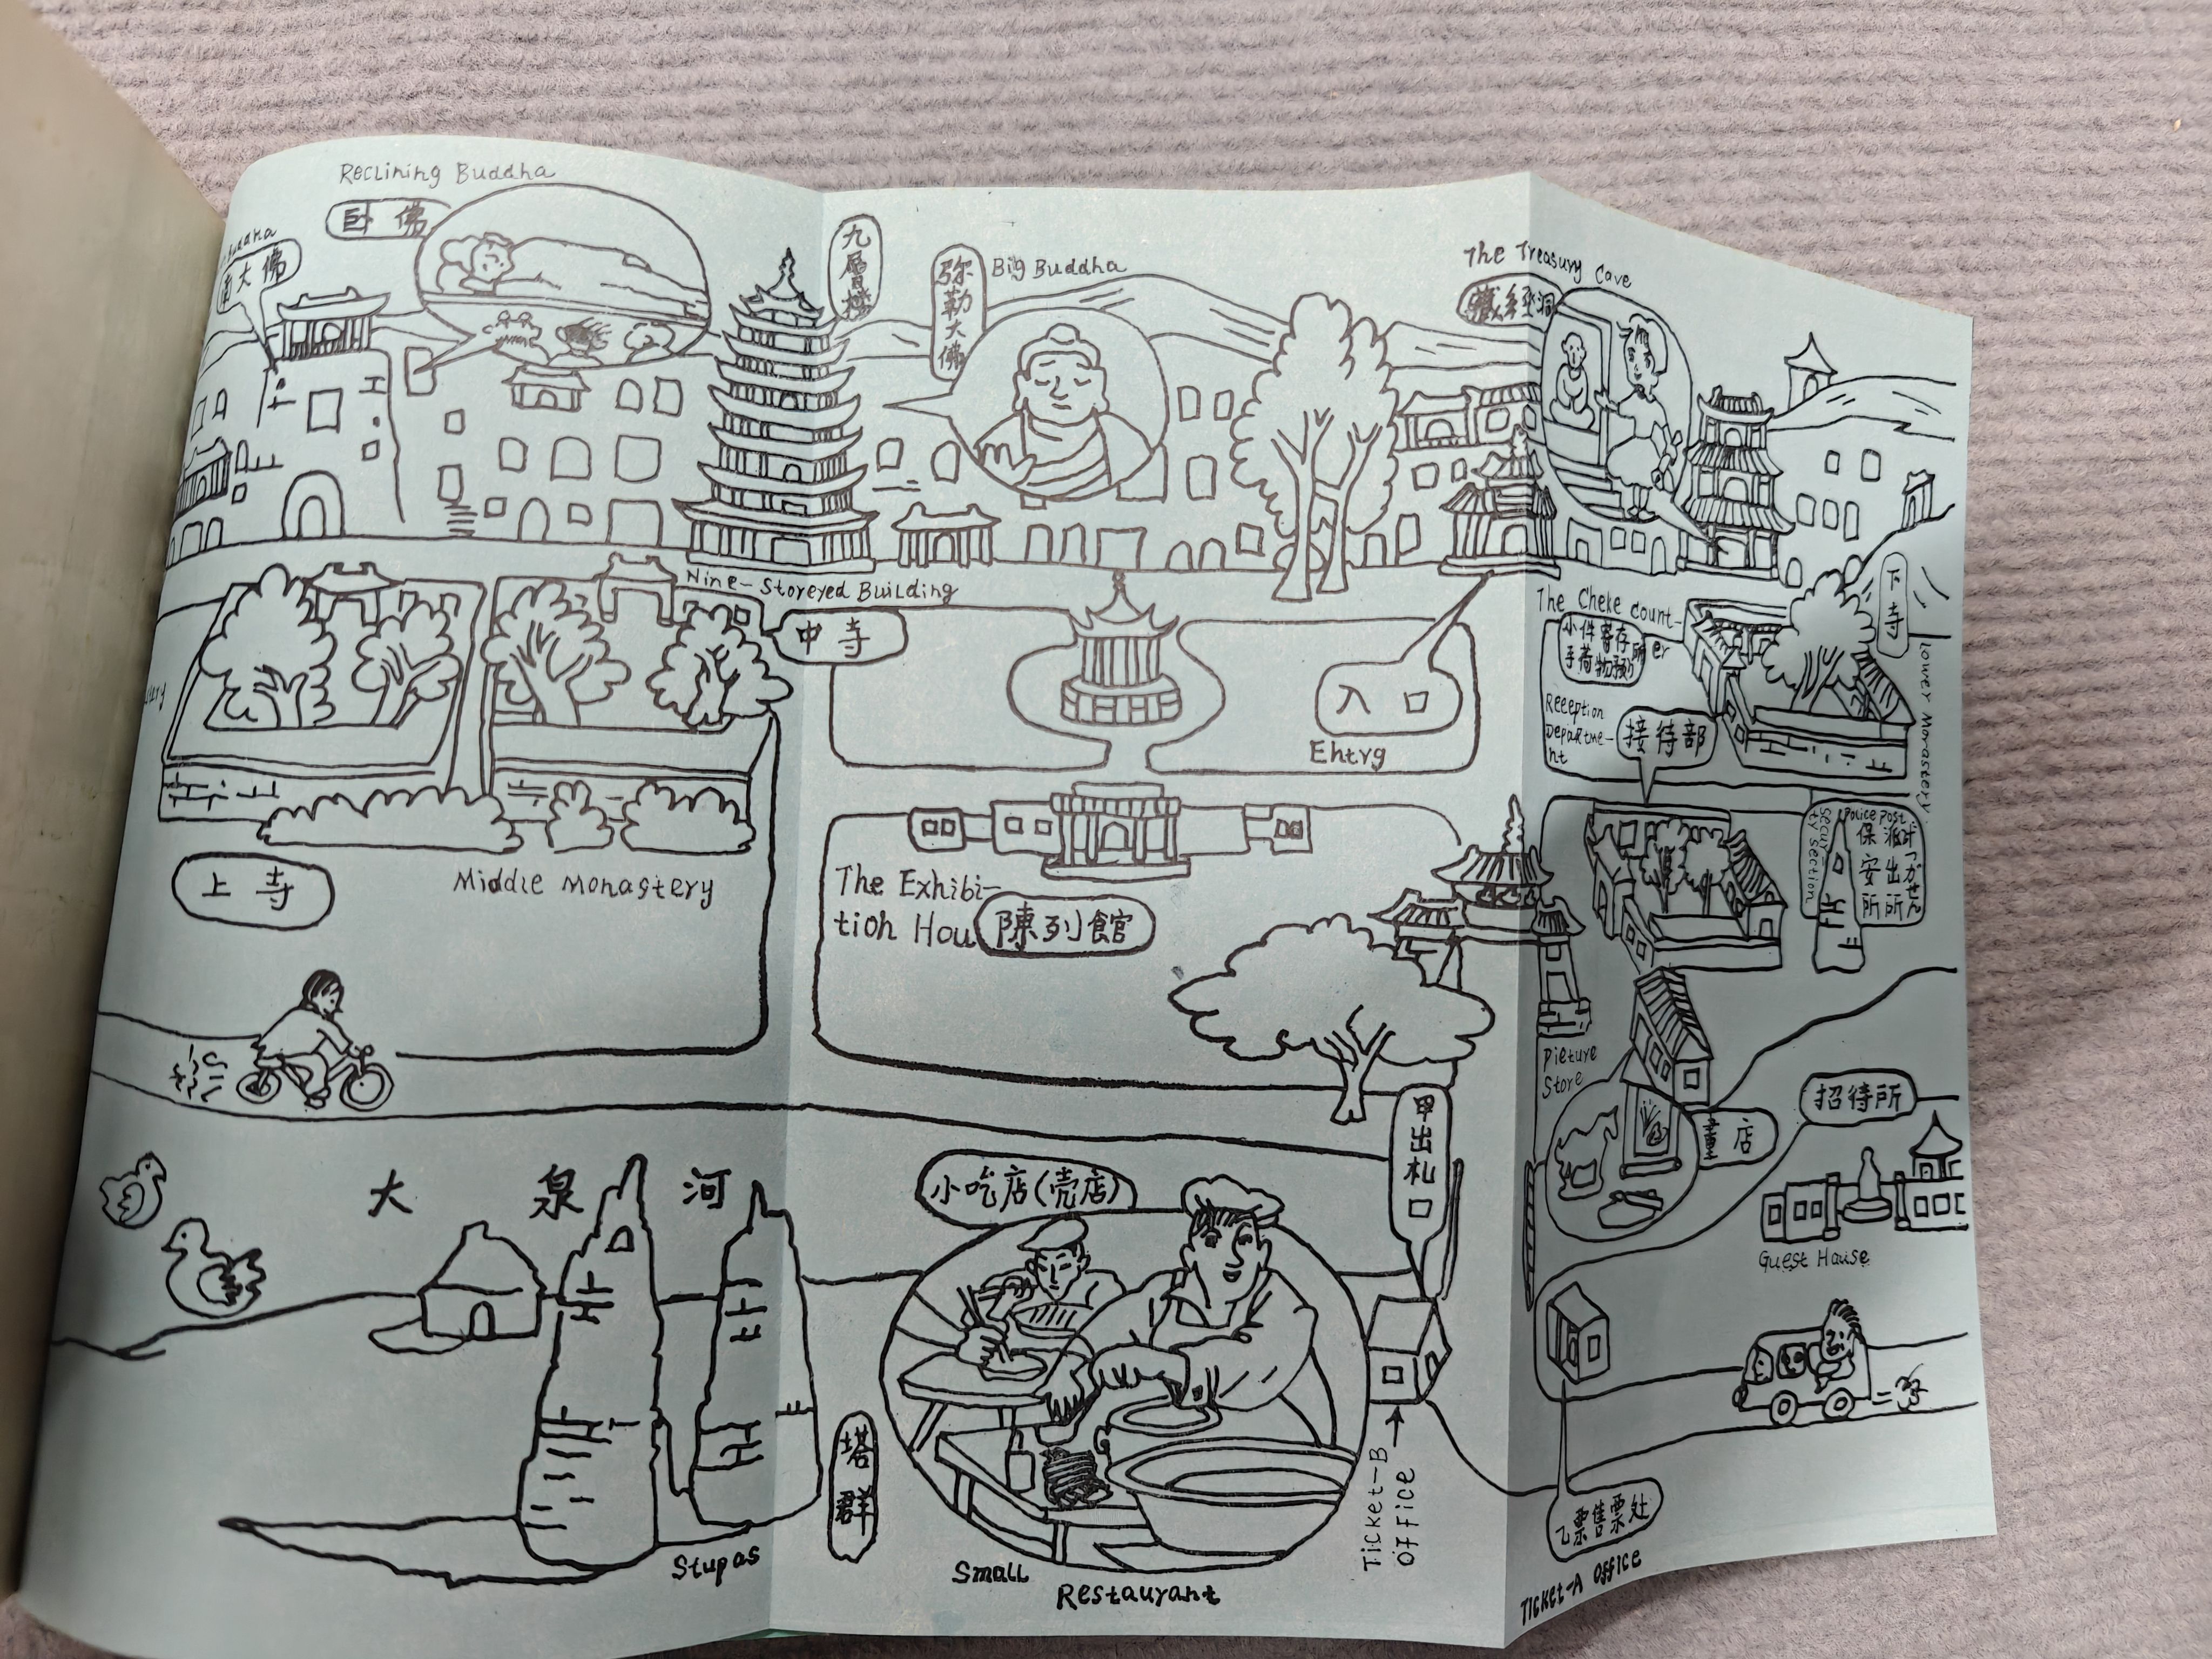 Reclining Buddha
卧佛
Buddha
南大佛
九層楼
弥勒大佛
Big Buddha
The Treasury Cave
藏经洞
Nine-Storeyed Building
中寺
入口
Ehtrg
The Cheke count-
er
小件寄存所
手荷物預り
下寺
lower Monastery
Reeeption
Depaltme-
nt
接待部
Police post
Securi-
ty section
保安所
派出所
上寺
Middle Monastery
The Exhibi-
tioh Hou
陳列館
Pieture
Store
店
招待所
Guest House
甲出札口
大泉河
小吃店(売店)
塔群
Stupas
Small
Restaurant
Ticket-B
Office
乙票售票处
Ticket-A Office